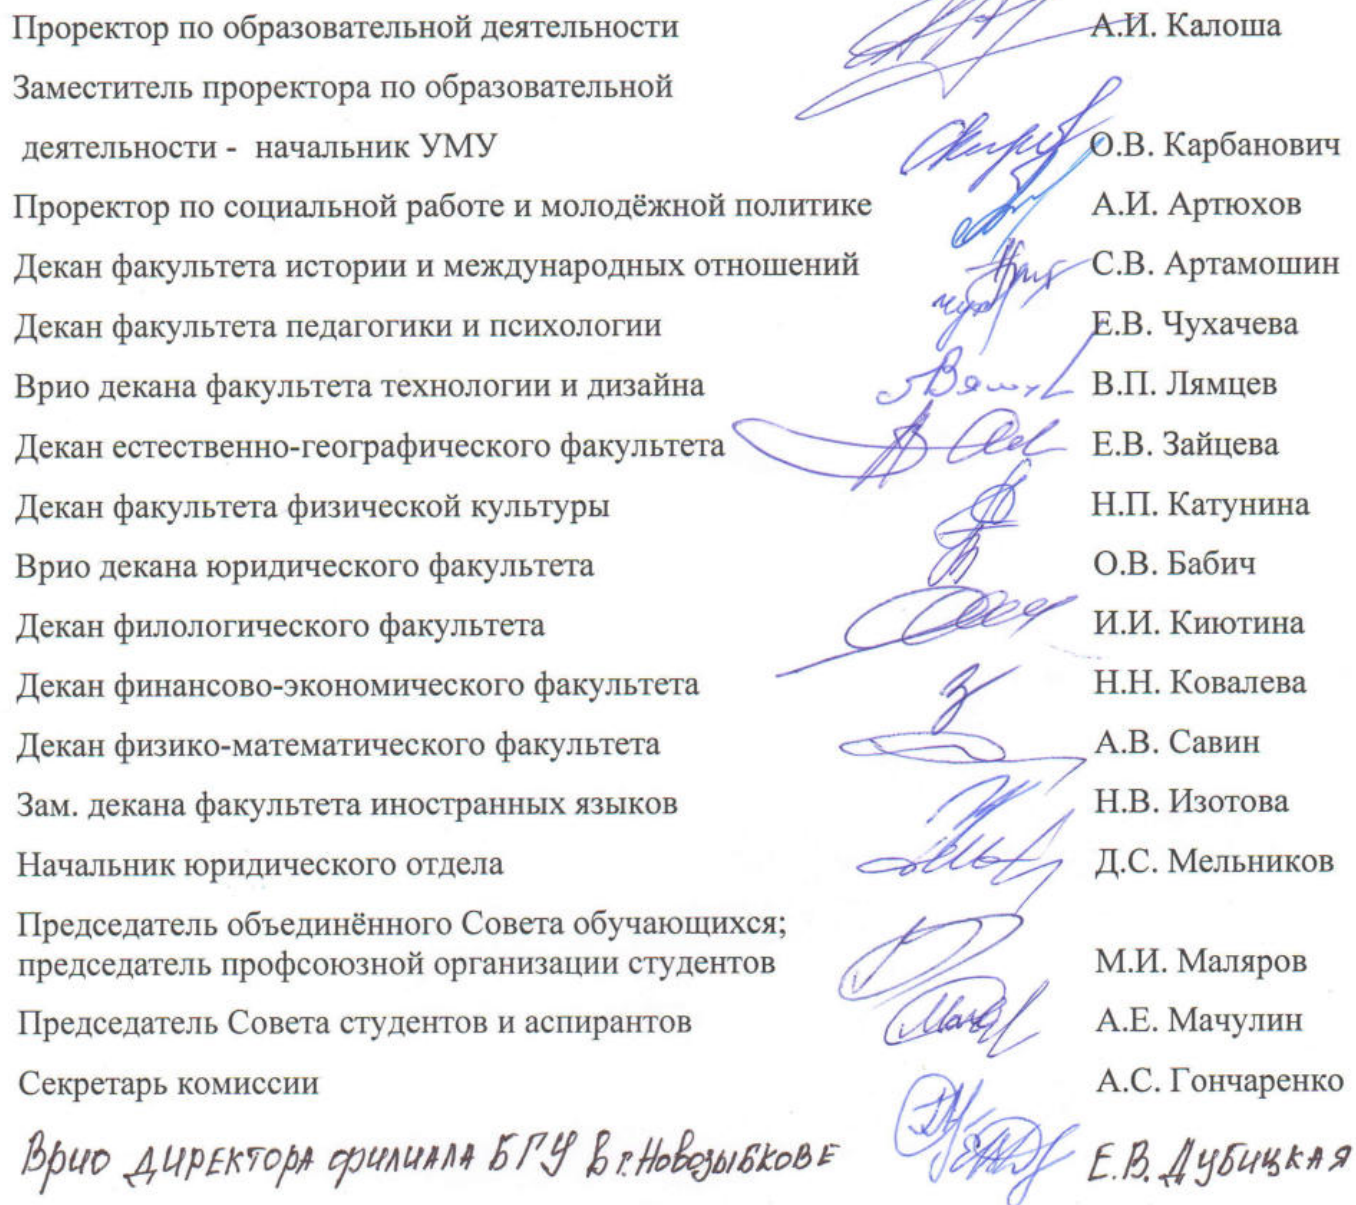 Проректор по образовательной деятельности А.И. Калоша
Заместитель проректора по образовательной
деятельности - начальник УМУ О.В. Карбанович
Проректор по социальной работе и молодёжной политике А.И. Артюхов
Декан факультета истории и международных отношений С.В. Артамошин
Декан факультета педагогики и психологии Е.В. Чухачева
Врио декана факультета технологии и дизайна В.П. Лямцев
Декан естественно-географического факультета Е.В. Зайцева
Декан факультета физической культуры Н.П. Катунина
Врио декана юридического факультета О.В. Бабич
Декан филологического факультета И.И. Киютина
Декан финансово-экономического факультета Н.Н. Ковалева
Декан физико-математического факультета А.В. Савин
Зам. декана факультета иностранных языков Н.В. Изотова
Начальник юридического отдела Д.С. Мельников
Председатель объединённого Совета обучающихся;
председатель профсоюзной организации студентов М.И. Маляров
Председатель Совета студентов и аспирантов А.Е. Мачулин
Секретарь комиссии А.С. Гончаренко
Врио директора филиала БГУ в г. Новозыбкове Е.В. Дубицкая